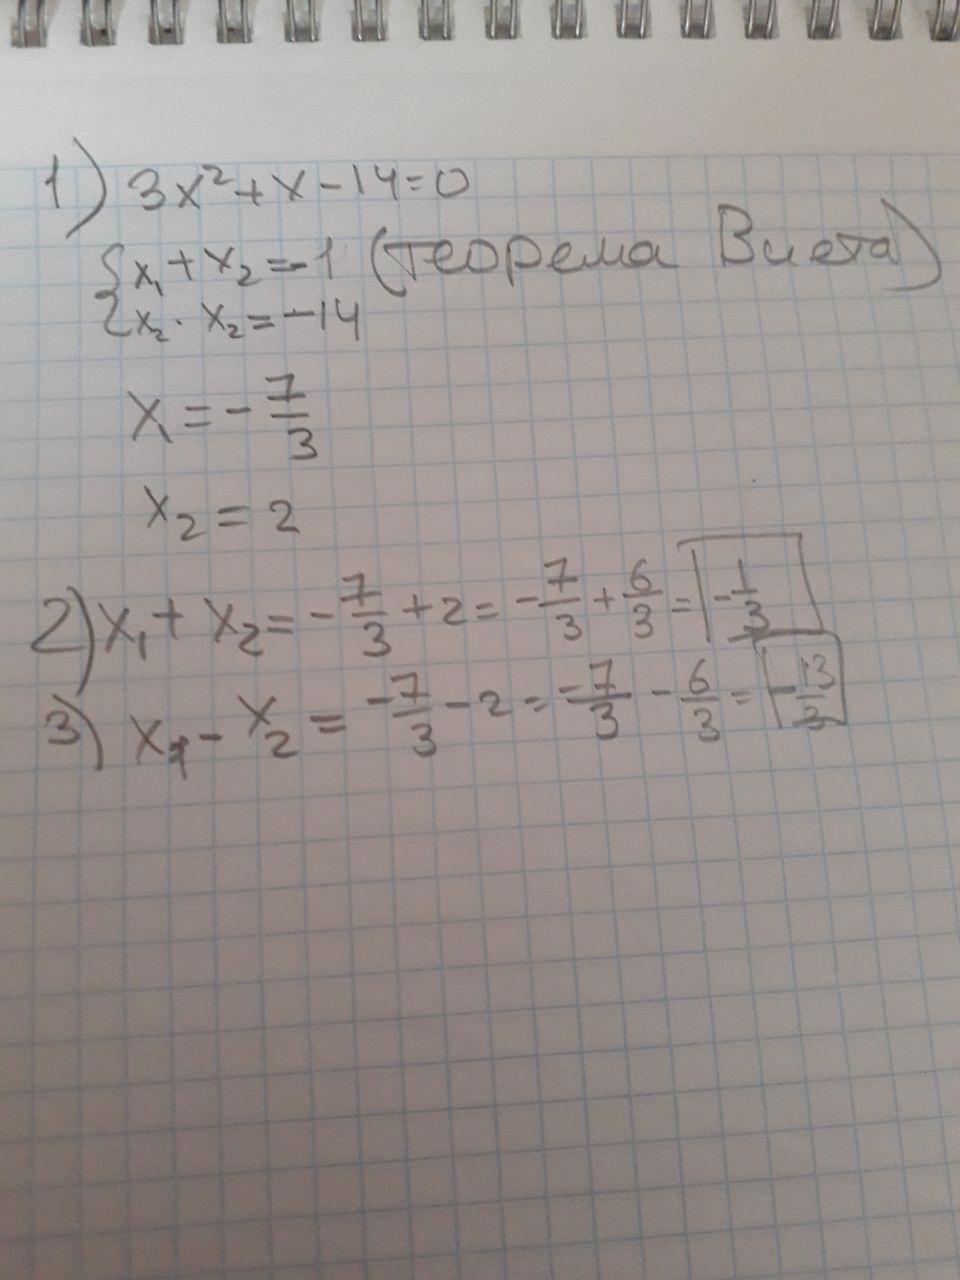 1) 3x²+x-14=0
{x₁+x₂=-1 (теорема Виета)
{x₂·x₂=-14
x₁=-7/3
x₂=2
2) x₁+x₂=-7/3+2=-7/3+6/3=-1/3
3) x₁-x₂=-7/3-2=-7/3-6/3=-13/3